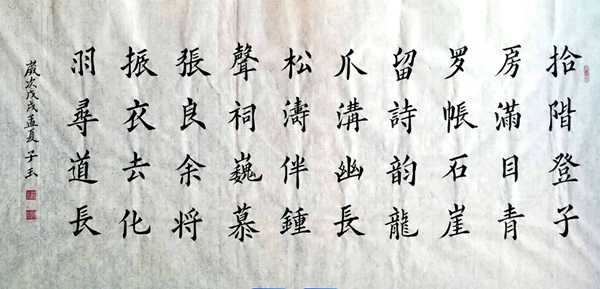 拾階登子
房滿目青
罗帳石崖
留詩韵龍
爪溝幽長
松濤伴鍾
聲祠巍慕
張良余将
振衣去化
羽尋道長
歲次戊戌孟夏 子玉